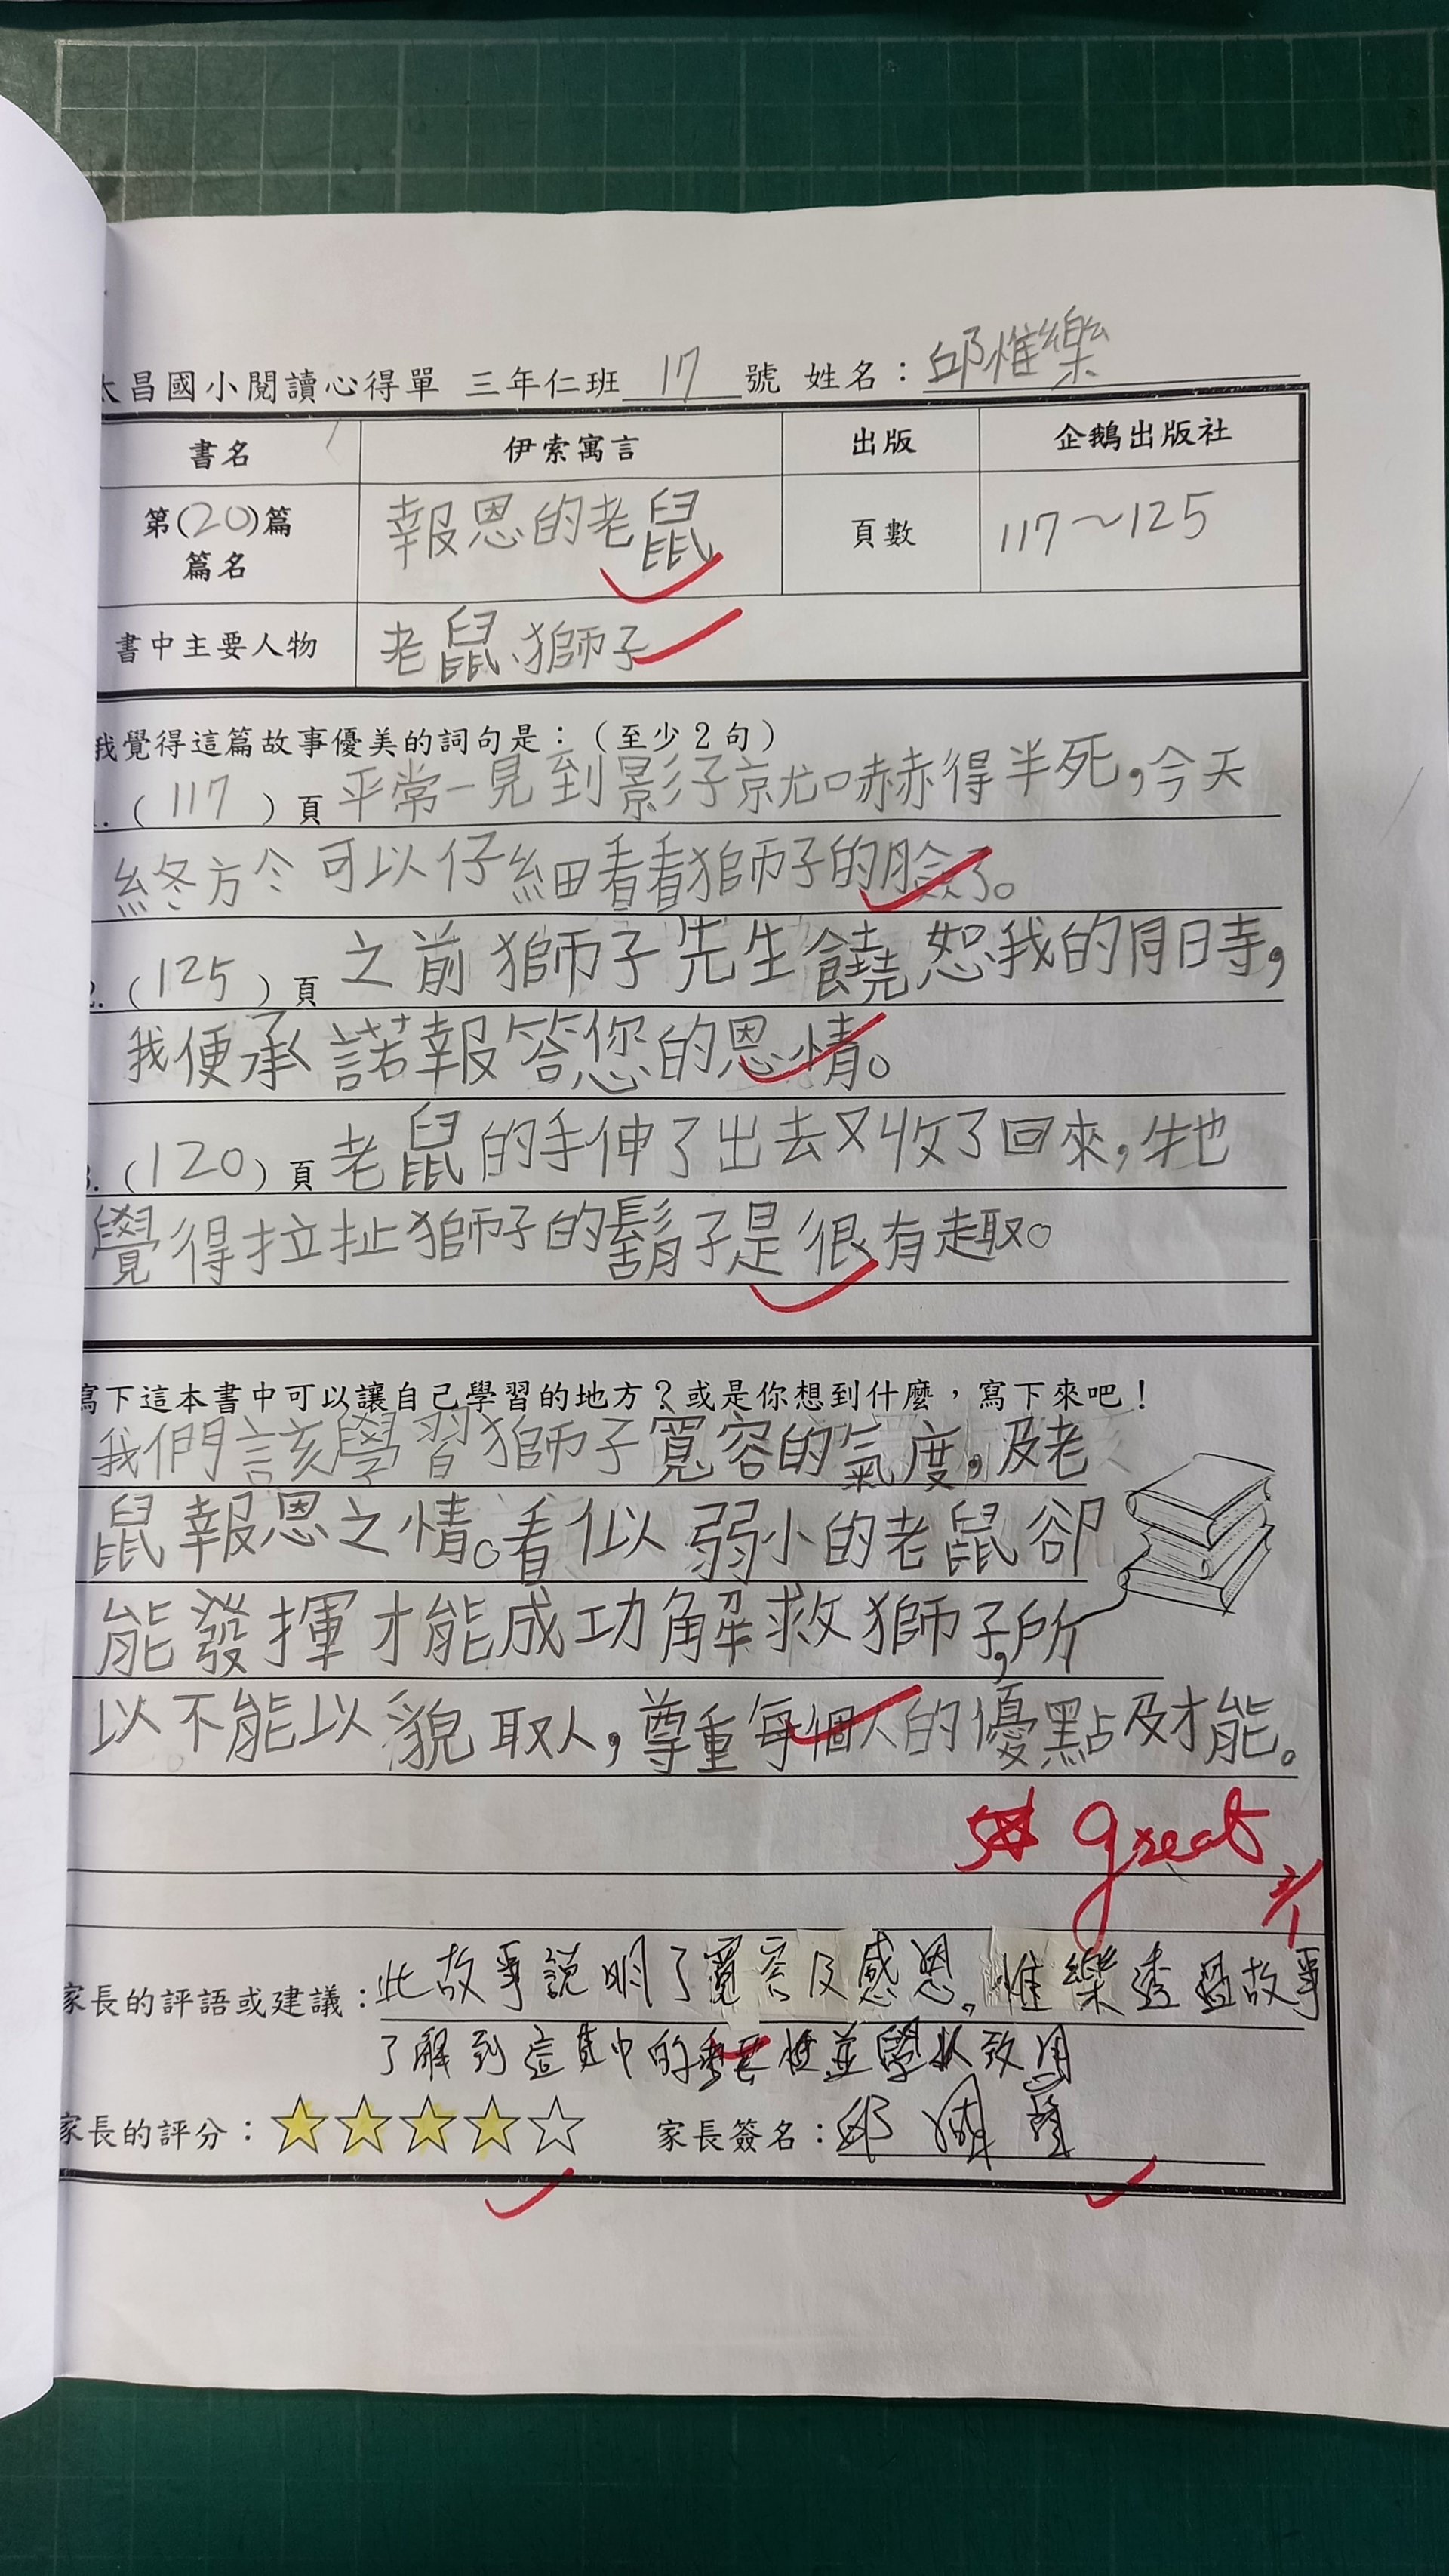 大昌國小閱讀心得單 三年仁班 17 號 姓名：邱惟樂
書名 伊索寓言 出版 企鵝出版社
第(20)篇 篇名 報恩的老鼠 頁數 117～125
書中主要人物 老鼠、獅子
我覺得這篇故事優美的詞句是：（至少2句）
1.（117）頁 平常一見到影子就嚇得半死，今天
終於可以仔細看看獅子的臉了。
2.（125）頁 之前獅子先生饒恕我的同時，
我便承諾報答您的恩情。
3.（120）頁 老鼠的手伸了出去又收了回來，牠
覺得拉扯獅子的鬍子是很有趣。
寫下這本書中可以讓自己學習的地方？或是你想到什麼，寫下來吧！
我們該學習獅子寬容的氣度，及老
鼠報恩之情。看似弱小的老鼠卻
能發揮才能成功解救獅子，所
以不能以貌取人，尊重每個人的優點及才能。
great
家長的評語或建議：此故事說明了寬容及感恩。惟樂透過故事
了解到這其中的重要性並學以致用
家長的評分：☆☆☆☆☆ 家長簽名：邱